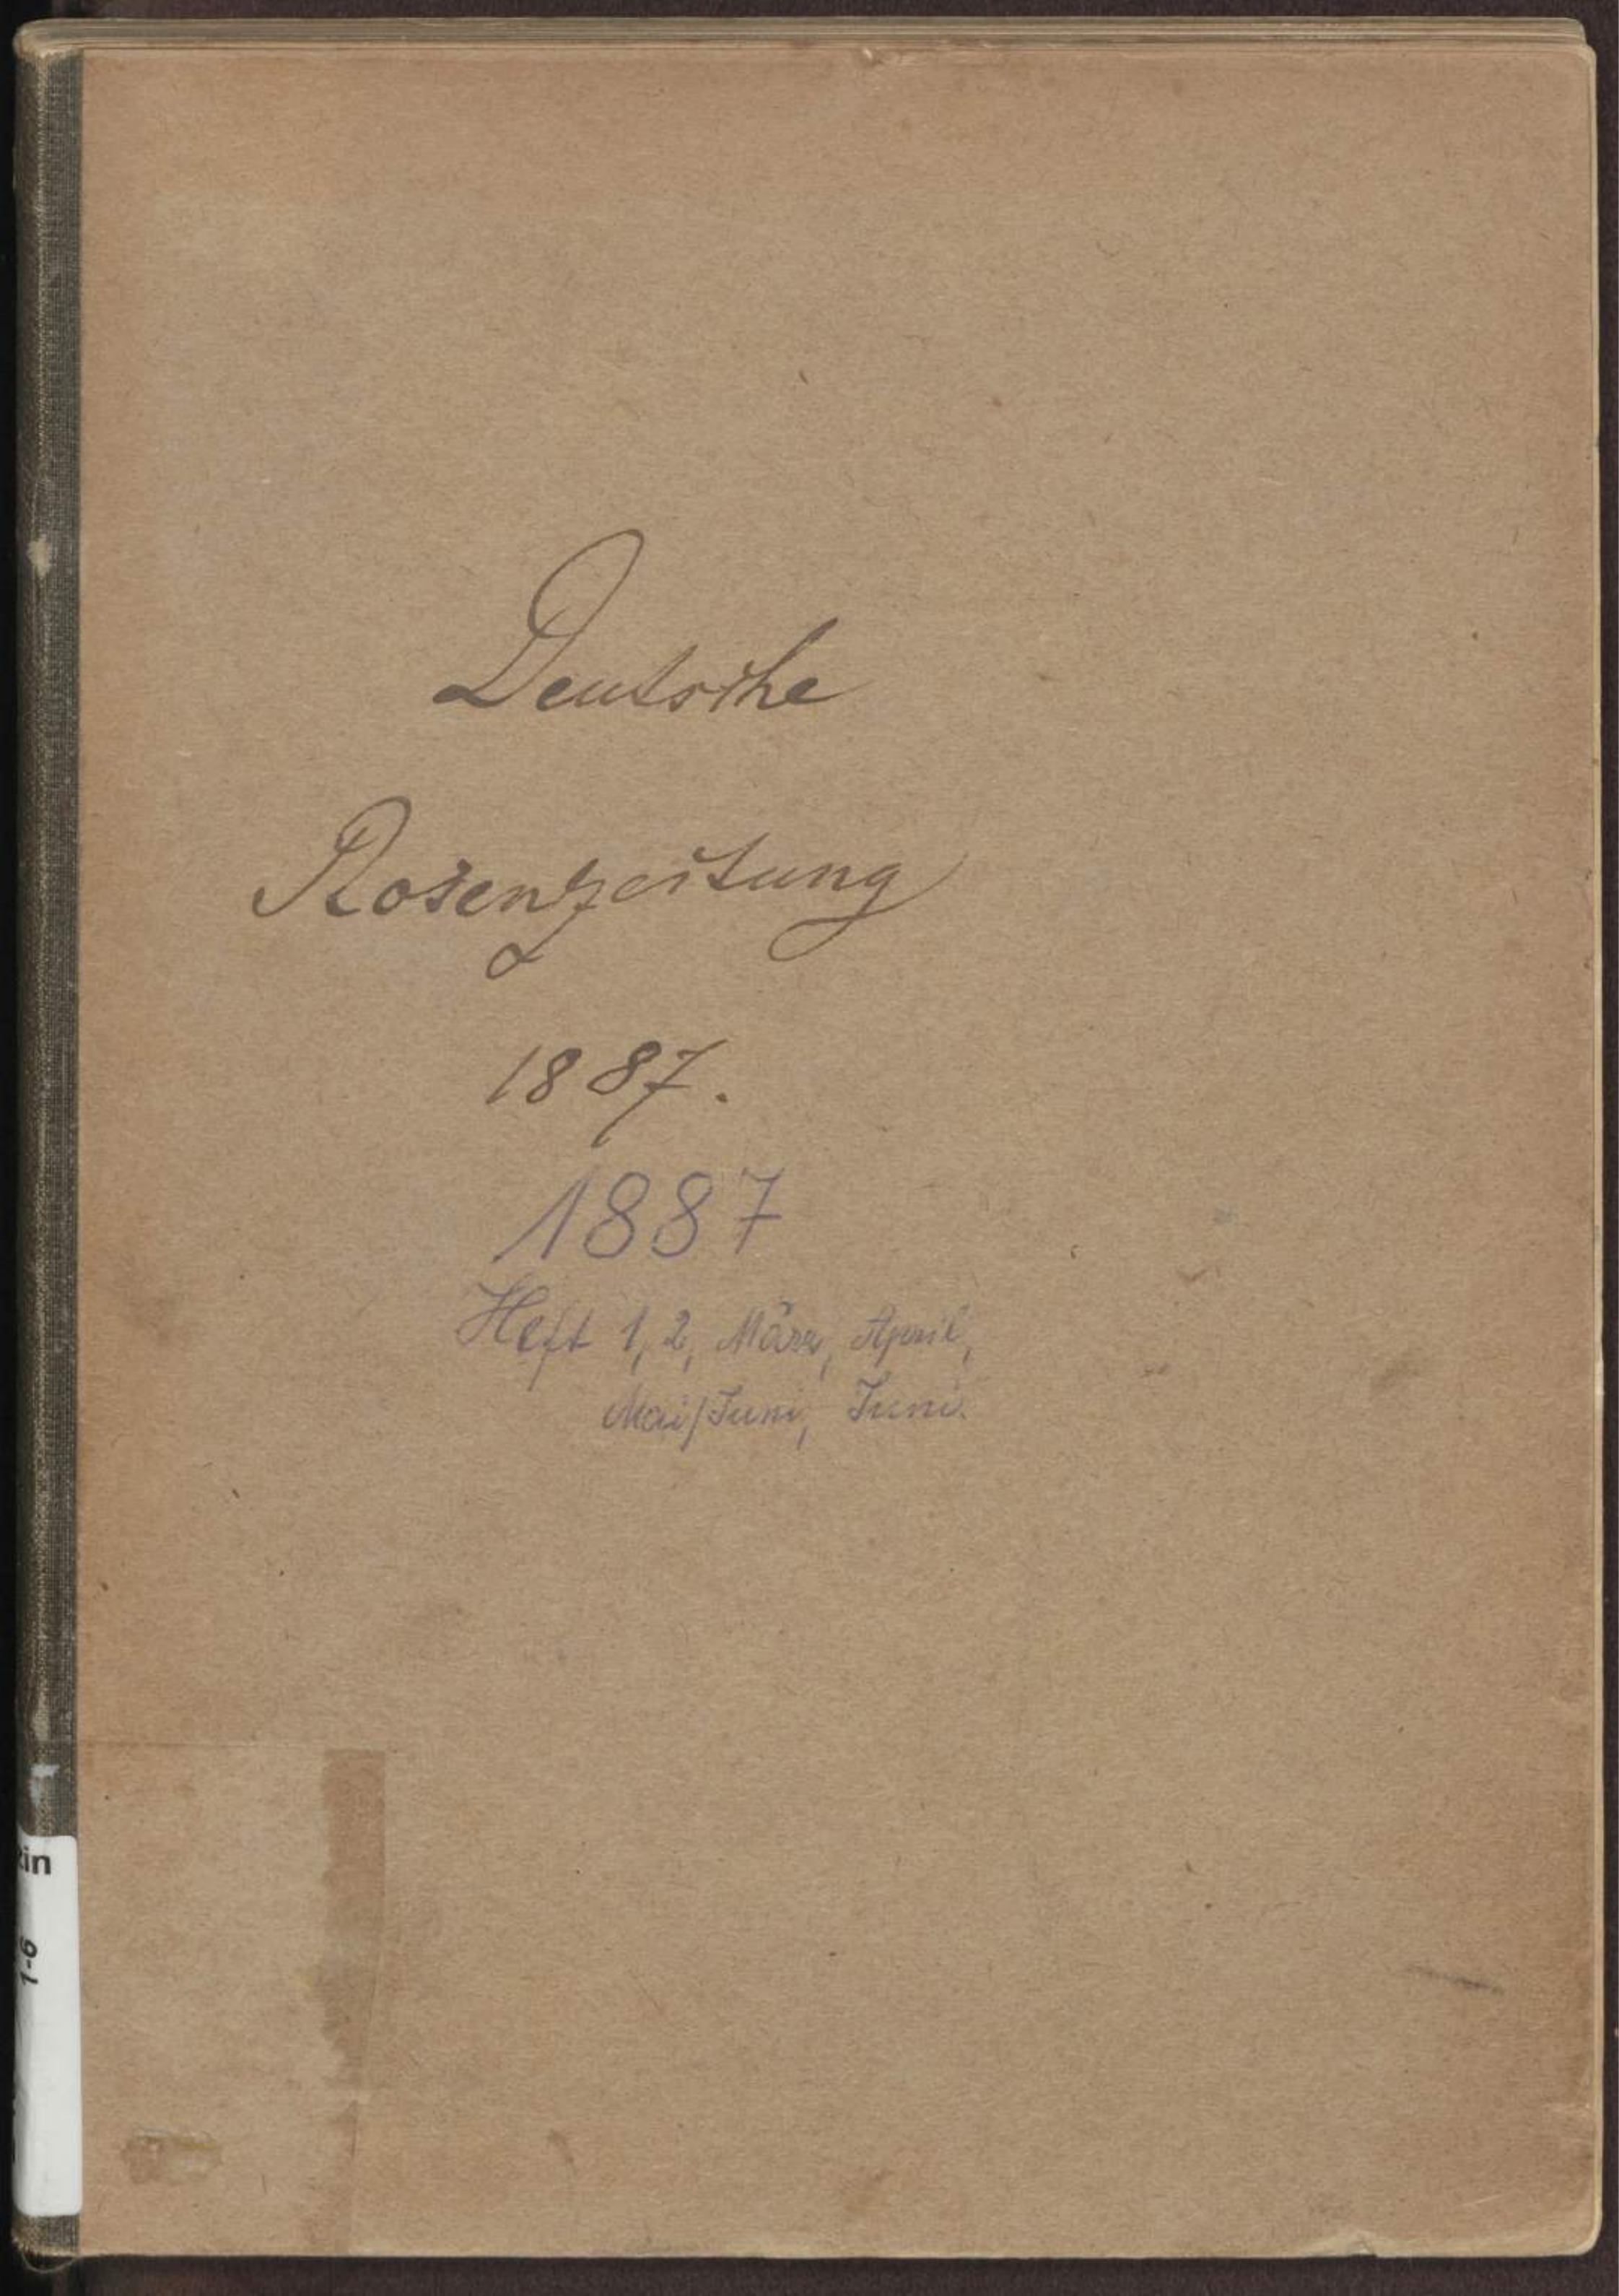 Deutsche
Rosenzeitung
1887.
1887
Heft 1, 2, März, April,
Mai/Juni, Juni.
in
1-6